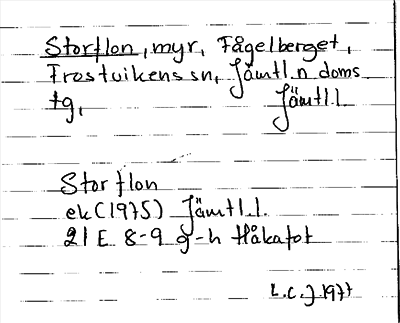 Storflon, myr, Fågelberget,
Frostvikens sn, Jämtl.n doms
tg, Jämtl.l.
Storflon
ek (1975) Jämtl.l.
21 E 8-9 g-h Håkafot
L.C.J. 1977